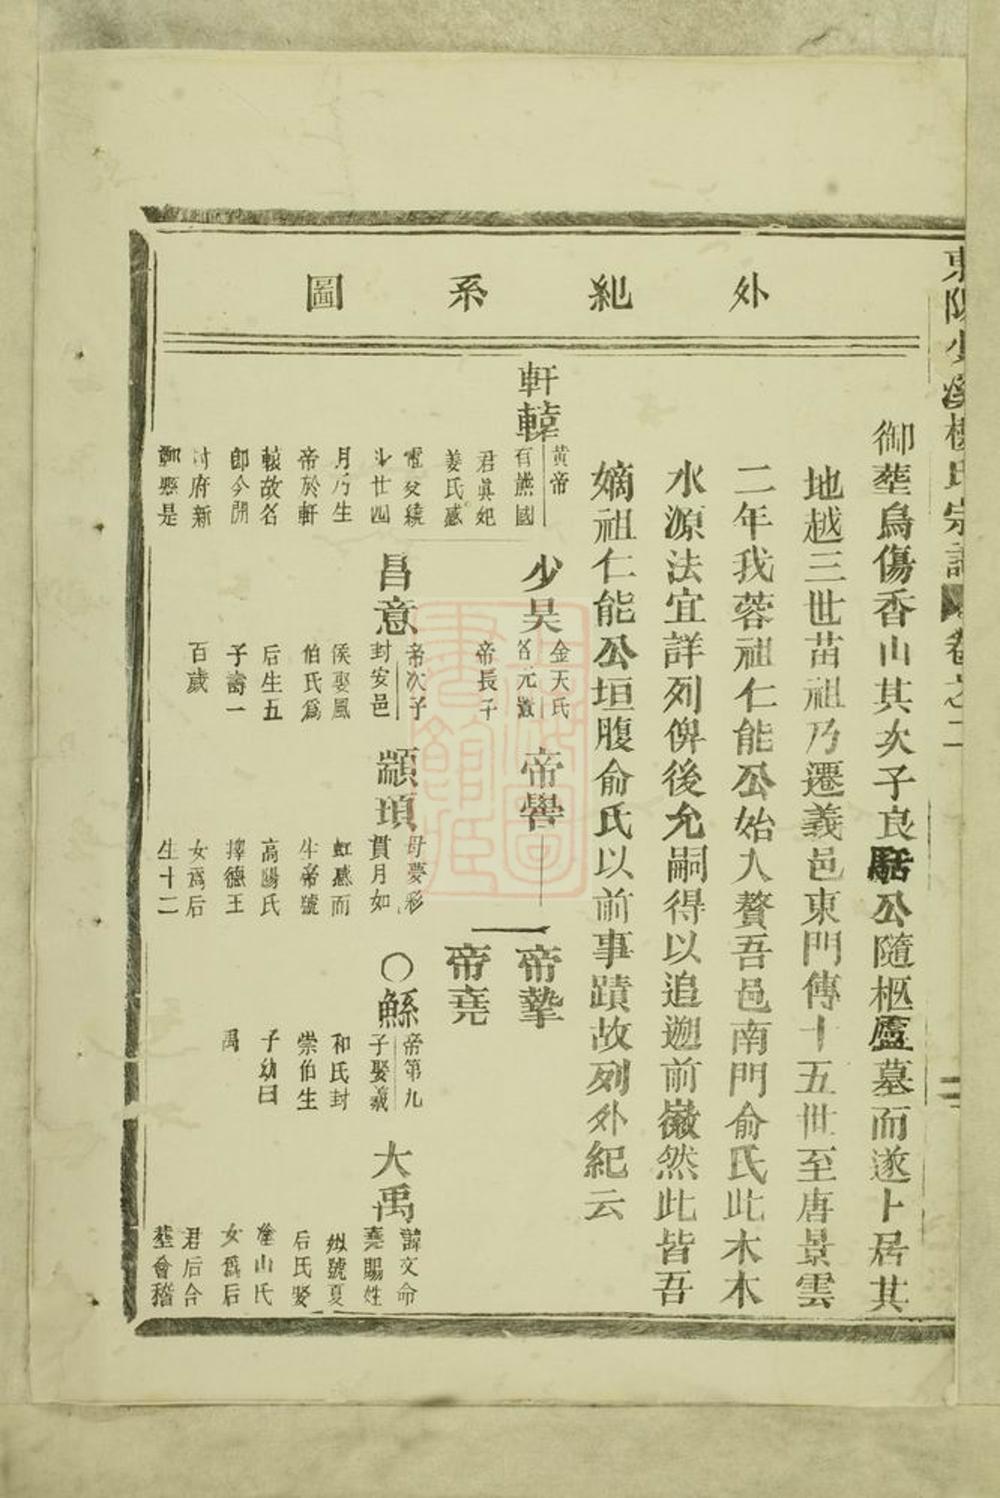 東陽小溪樓氏宗譜 卷之一
御塟烏傷香山其次子良駘公隨柩廬墓而遂卜居其
地越三世苗祖乃遷義邑東門傳十五世至唐景雲
二年我蓉祖仁能公始入贅吾邑南門俞氏此木木
水源法宜詳列俾後允嗣得以追遡前徽然此皆吾
嫡祖仁能公垣腹俞氏以前事蹟故列外紀云
外紀系圖
軒轅
黄帝
有熊國
君眞妃
姜氏感
電爻繞
斗廿四
月乃生
帝於軒
轅故名
卽今開
封府新
鄭縣是
少昊
金天氏
名元囂
帝長子
昌意
帝次子
封安邑
侯娶風
伯氏爲
后生五
子壽一
百歲
帝嚳
顓頊
母夢彩
貫月如
虹感而
生帝號
高陽氏
擇德王
女爲后
生十二
帝摯
帝堯
○鯀
帝第九
子娶羲
和氏封
崇伯生
子幼曰
禹
大禹
諱文命
堯賜姓
姒號夏
后氏娶
塗山氏
女爲后
君后合
塟會稽